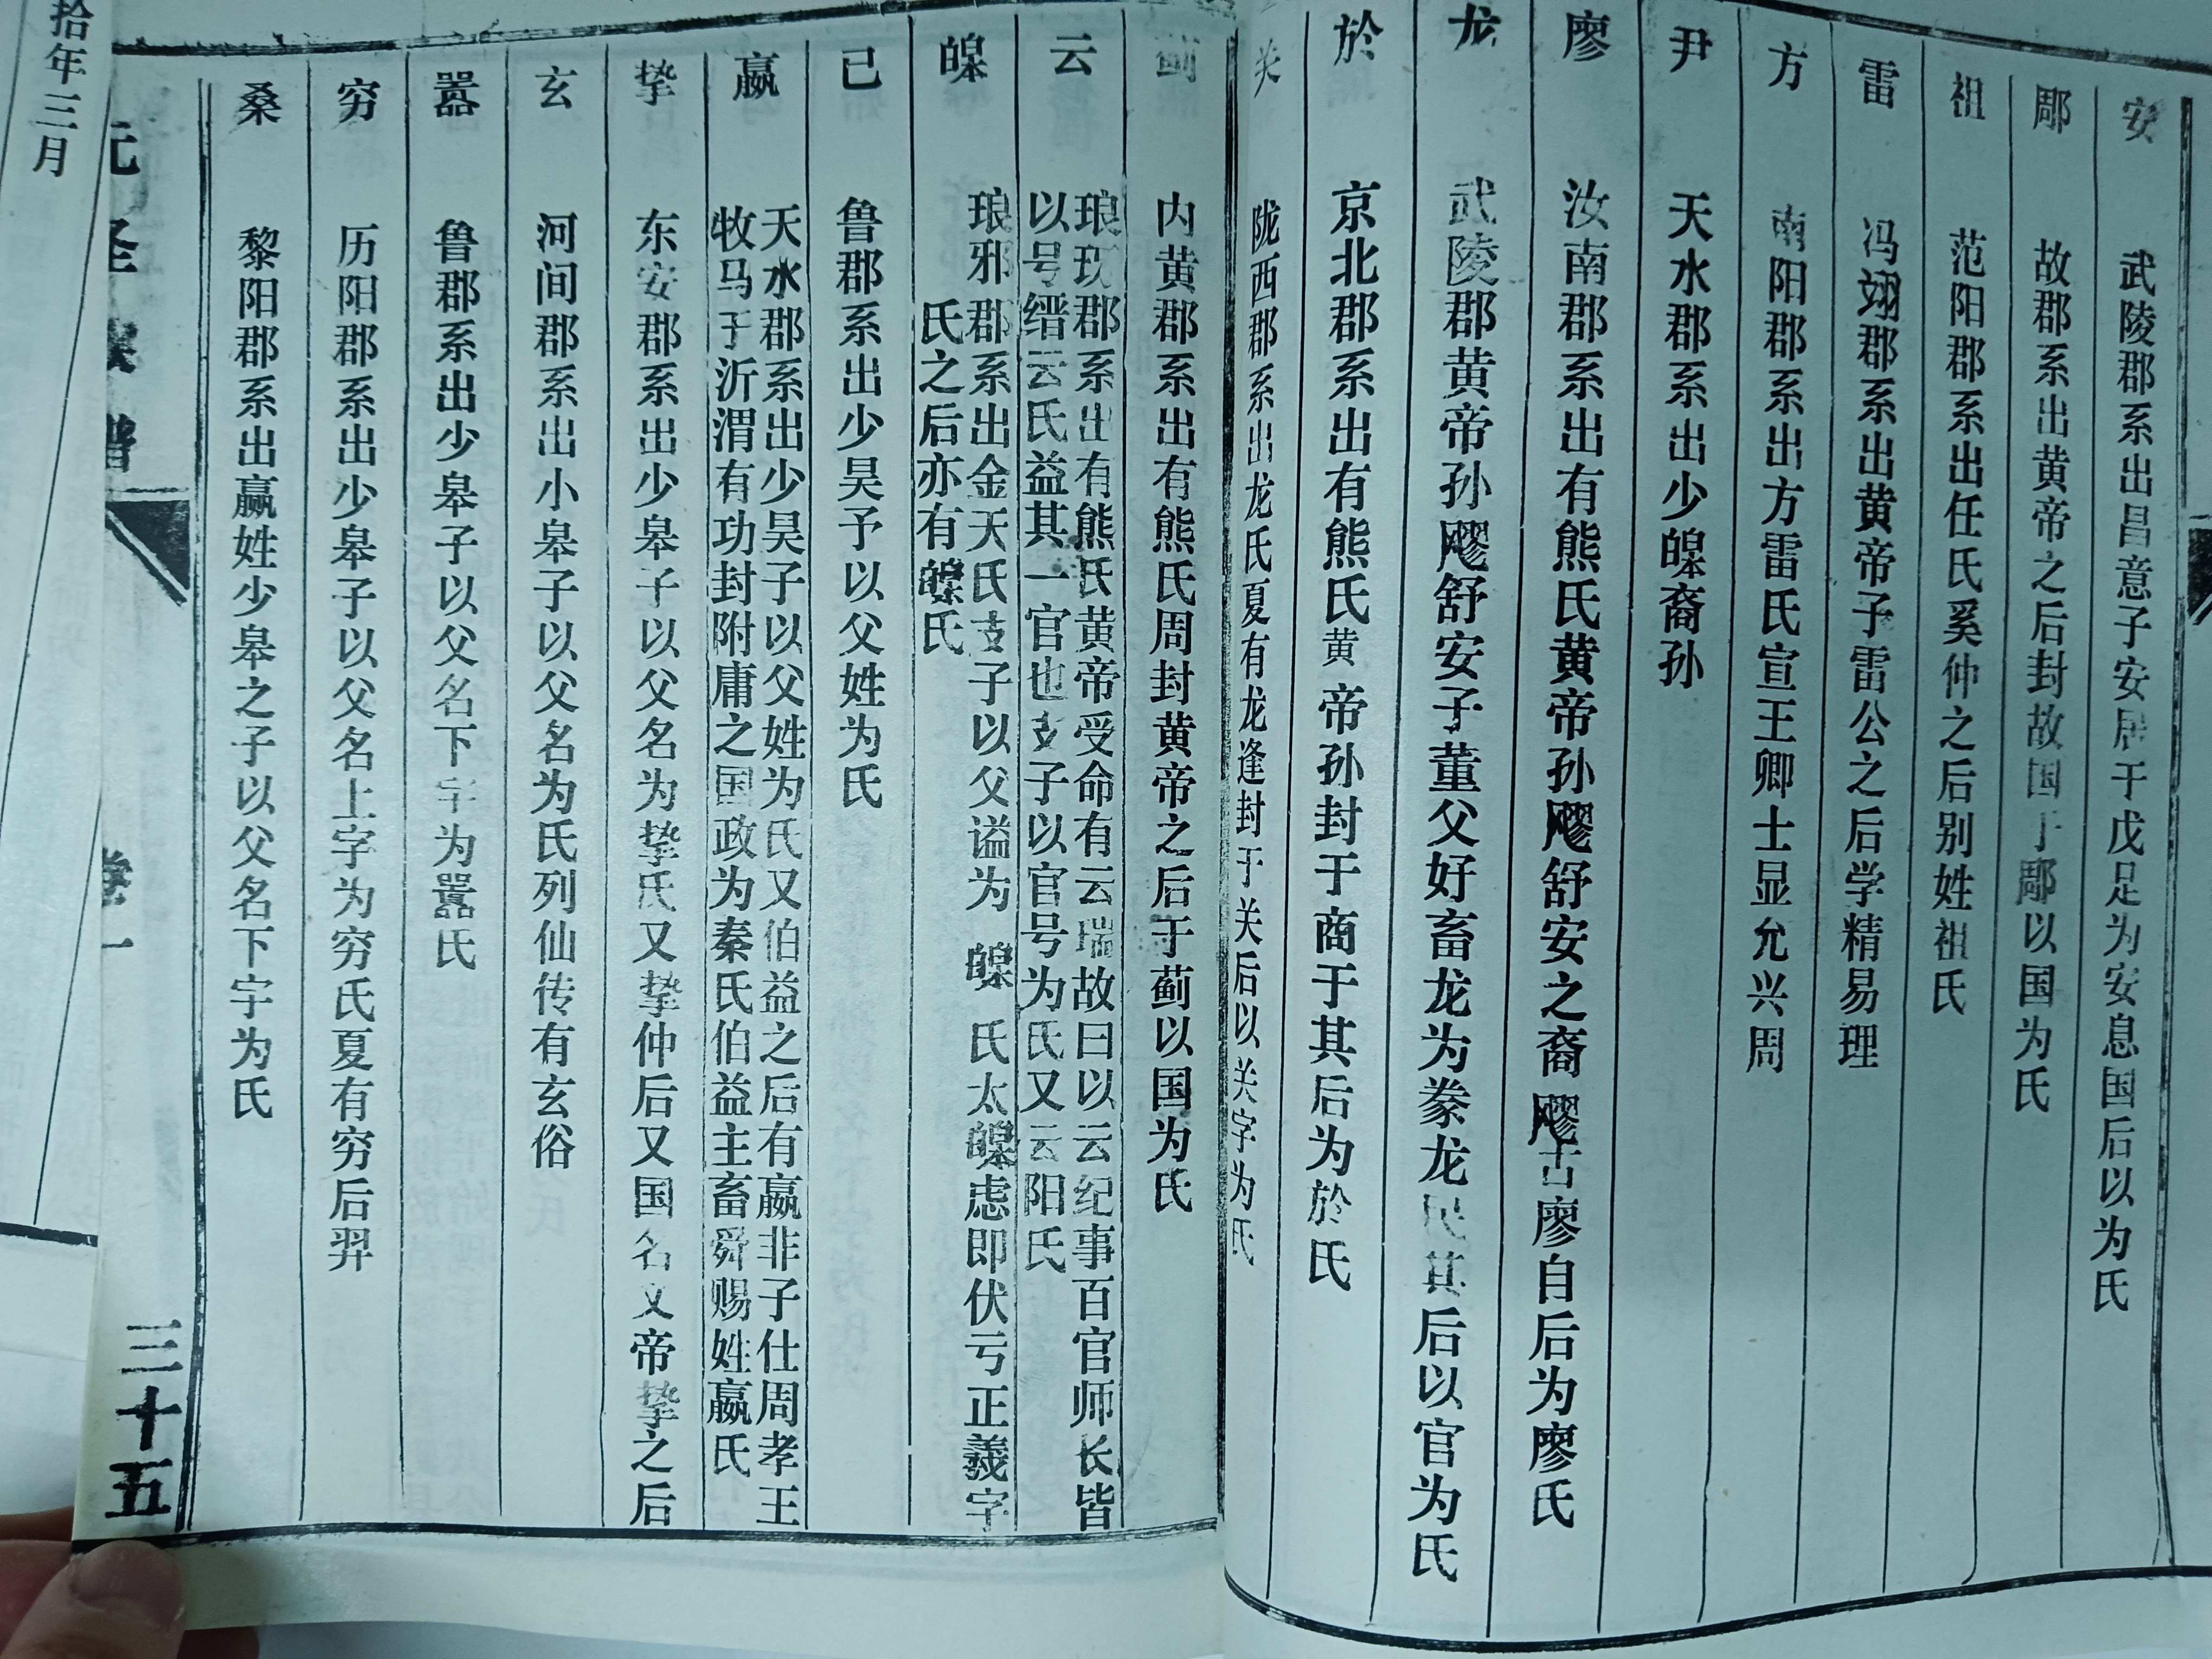 安　武陵郡系出昌意子安居于戊足为安息国后以为氏
鄅　故郡系出黄帝之后封故国于鄅以国为氏
祖　范阳郡系出任氏奚仲之后别姓祖氏
雷　冯翊郡系出黄帝子雷公之后学精易理
方　南阳郡系出方雷氏宣王卿士显允兴周
尹　天水郡系出少皞裔孙
廖　汝南郡系出有熊氏黄帝孙飂舒安之裔飂古廖自后为廖氏
龙　武陵郡黄帝孙飂舒安子董父好畜龙为豢龙氏其后以官为氏
於　京北郡系出有熊氏黄帝孙封于商于其后为於氏
关　陇西郡系出龙氏夏有龙逢封于关后以关字为氏
蓟　内黄郡系出有熊氏周封黄帝之后于蓟以国为氏
云　琅玡郡系出有熊氏黄帝受命有云瑞故曰以云纪事百官师长皆
以号缙云氏益其一官也支子以官号为氏又云阳氏
皞　琅邪郡系出金天氏支子以父谥为皞氏太皞虑即伏亏正羲字
氏之后亦有皞氏
已　鲁郡系出少昊予以父姓为氏
嬴　天水郡系出少昊子以父姓为氏又伯益之后有嬴非子仕周孝王
牧马于沂渭有功封附庸之国政为秦氏伯益主畜舜赐姓嬴氏
挚　东安郡系出少皋子以父名为挚氏又挚仲后又国名又帝挚之后
玄　河间郡系出小皋子以父名为氏列仙传有玄俗
嚣　鲁郡系出少皋子以父名下字为嚣氏
穷　历阳郡系出少皋子以父名上字为穷氏夏有穷后羿
桑　黎阳郡系出嬴姓少皋之子以父名下字为氏
卷一
三十五
拾年三月